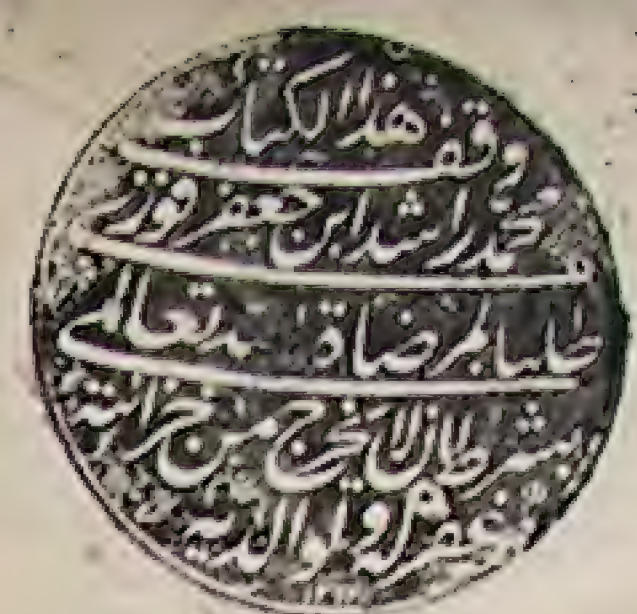 وقف هذا الكتاب
محمد راشد ابن جعفر فوزى
طلبا لمرضاة الله تعالى
وبشرط ان لا يخرج من خزانته
غفر له ولوالديه